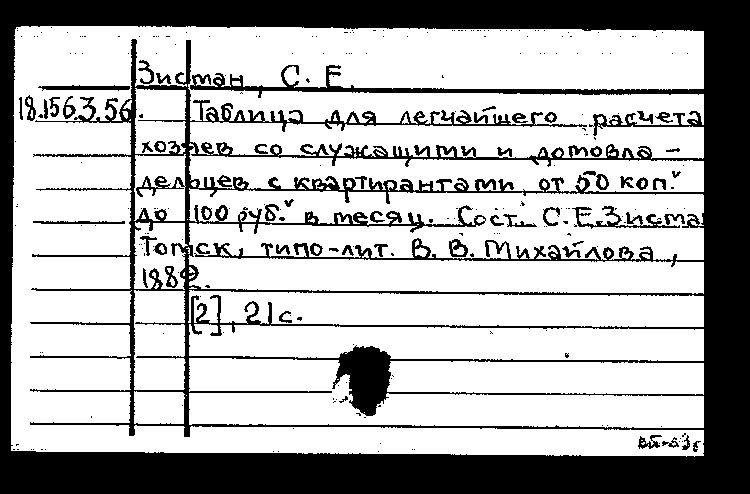 Зистан, С. Е.
18.156.3.56. Таблица для легчайшего расчета
хозяев со служащими и домовла-
дельцев с квартирантами, от 50 коп.
до 100 руб. в месяц. Сост. С.Е.Зистан
Томск, типо-лит. В. В. Михайлова,
1889.
[2], 21 с.